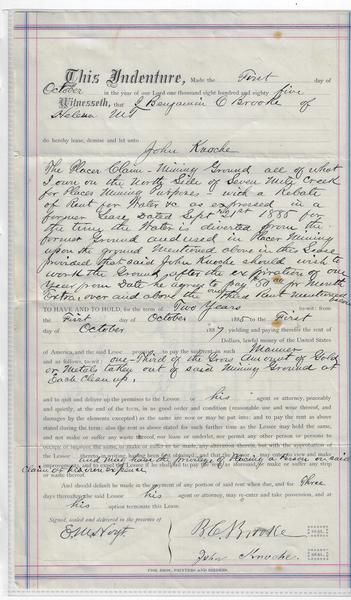 This Indenture, Made the First day of
October in the year of our Lord one thousand eight hundred and eighty five
Witnesseth, that I Benjamin C Brooke of
Helena M.T.
do hereby lease, demise and let unto
John Knoche
The Placer Claim - Mining Ground all of what
I own on the North Side of Seven Mile Creek
for Placer Mining Purposes - with a Rebate
of Rent for Water as expressed in a
former Lease Dated Sept 1st 1885 for
the time the Water is diverted from the
former Ground and used in Placer Mining
upon the ground mentioned above in the Lease
provided that said John Knoche should wish to
work the Ground after the expiration of one
Year from Date he agrees to pay 50 per Month
Extra, over and above the other Rent mentioned
TO HAVE AND TO HOLD, for the term of Two Years to-wit: from
the First day of October 1885 to the First
day of October 1887, yielding and paying therefor the rent of
Dollars, lawful money of the United States
of America, and the said Lessee promises to pay the said rent in Manner
as follows, to-wit: one-Third of the Gross Amount of Gold
or Metals taken out of said Mining Ground at
Each Clean up,
and to quit and deliver up the premises to the Lessor his agent or attorney, peaceably
and quietly, at the end of the term, in as good order and condition (reasonable use and wear thereof, and
damages by the elements excepted) as the same are now or may be put into; and to pay the rent as above
stated during the term; also the rent as above stated for such further time as the Lessee may hold the same,
and not make or suffer any waste thereof, nor lease or underlet, nor permit any other person or persons to
occupy or improve the same, or make or suffer to be made, any alteration therein, but with the approbation of
the Lessor thereto in writing, having been first obtained; and that the Lessor may enter to view and make
improvements, and to expel the Lessee if he shall fail to pay the rent as aforesaid or make or suffer any strip
or waste thereof.
and may have the privilege of placing a house on said
Claim
And should default be made in the payment of any portion of said rent when due, and for Three
days thereafter the said Lessor his agent or attorney, may re-enter and take possession, and at
his option terminate this Lease.
Signed, sealed and delivered in the presence of
B. C. Brooke SEAL
John Knoche SEAL